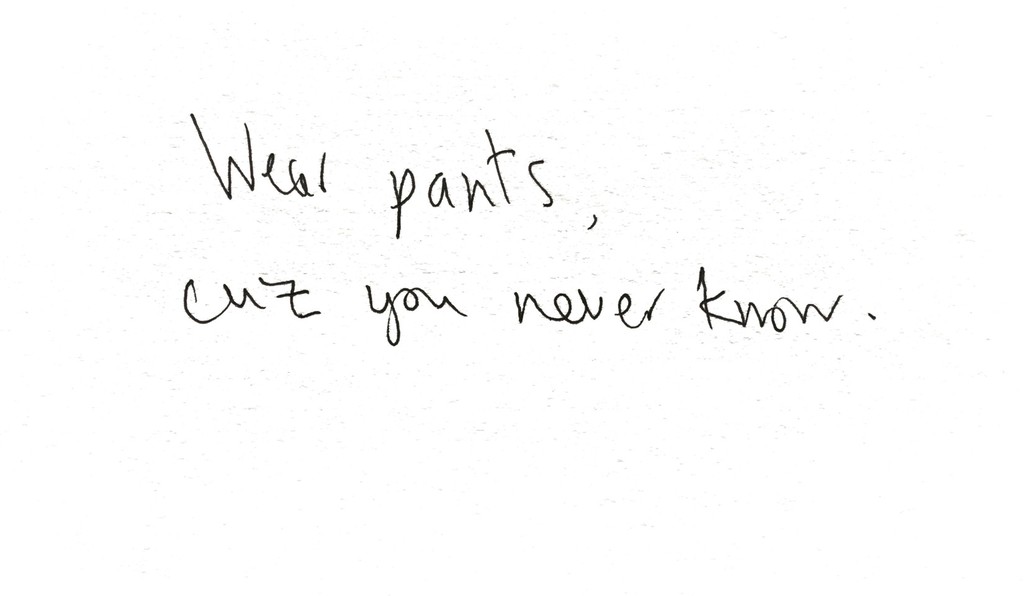 Wear pants,
cuz you never know.